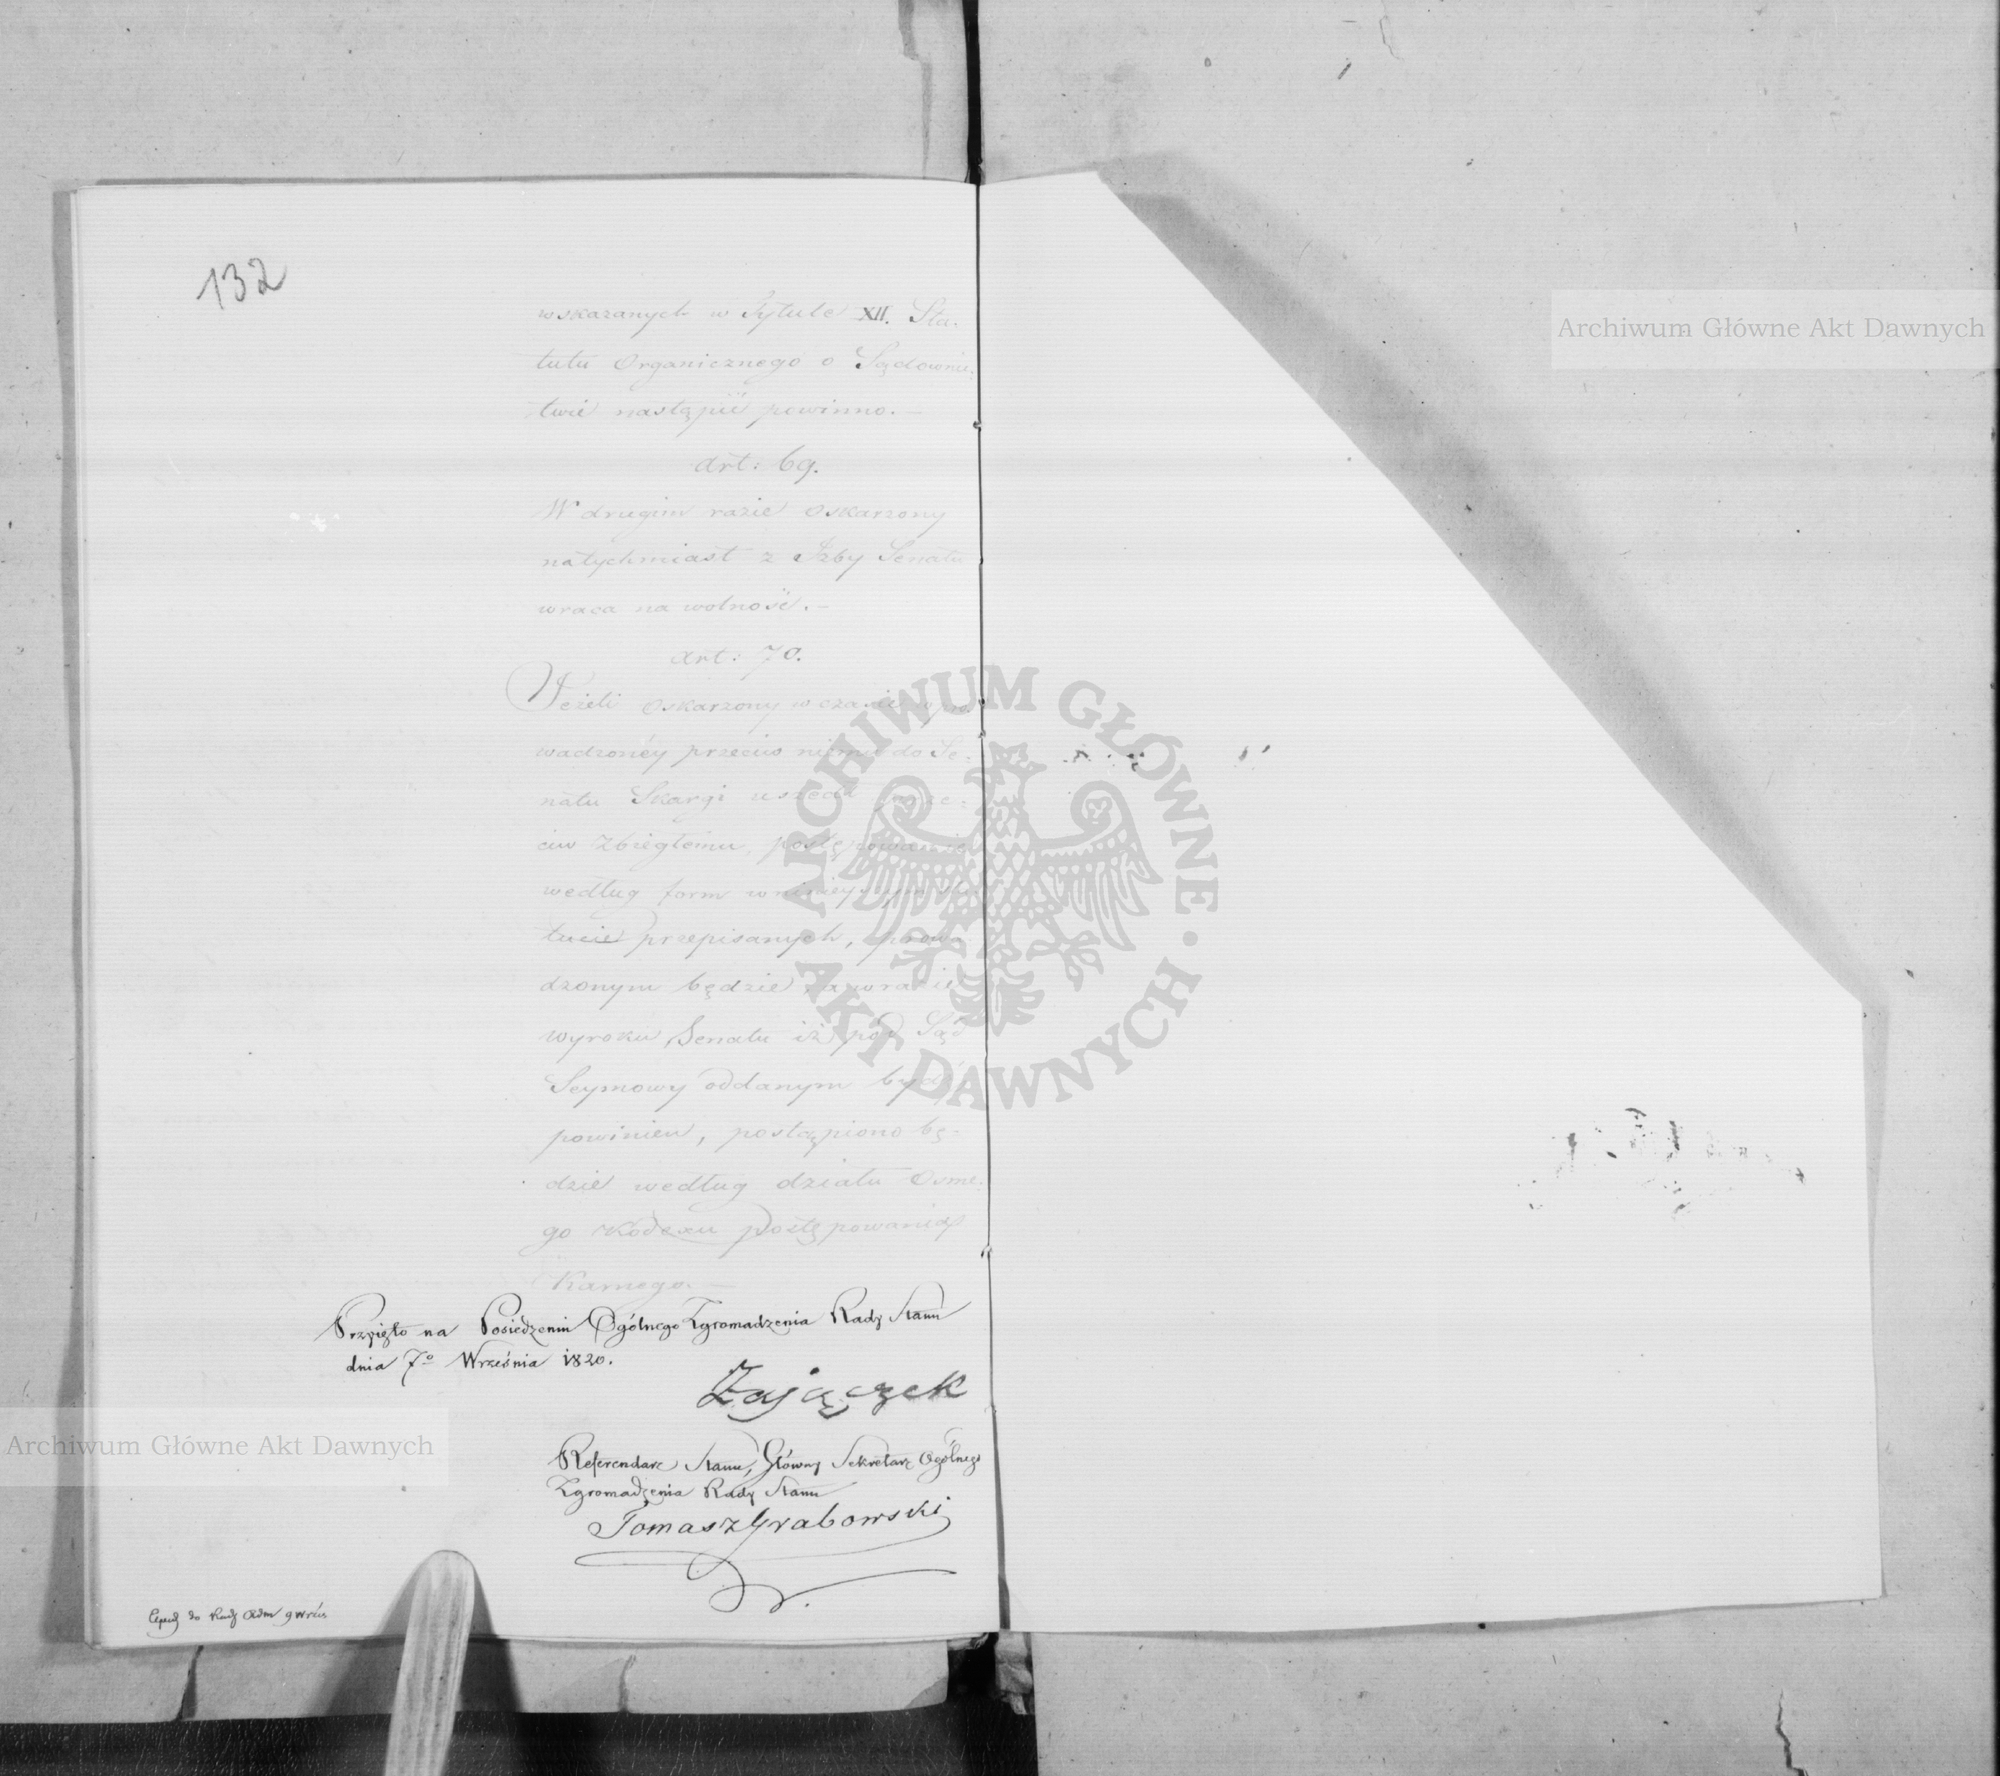 132
wskazanych w Tytule XII. Sta-
tutu Organicznego o Sądownic-
twie nastąpić powinno. –
Art: 69.
W drugim razie Oskarzony
natychmiast z Izby Senatu
wraca na wolność. –
Art: 70.
Jeżeli Oskarzony w czasie wpro-
wadzonéy przeciw niemu do Se-
natu Skargi uszedł prze-
ciw Zbiegłemu, postępowanie
według form w ninieyszym sta-
tucie przepisanych, prowa-
dzonym będzie, a w razie
wyroku Senatu iż pod Sąd
Seymowy oddanym bydź
powinien, postąpiono bę-
dzie według działu Osme-
go Kodexu postępowania
Karnego. –
Przyięto na Posiedzeniu Ogólnego Zgromadzenia Rady Stanu
dnia 7º Września 1820.
Zajączek
Referendarz Stanu, Główny Sekretarz Ogólnego
Zgromadzenia Rady Stanu
Tomasz Grabowski
do Rady Adm 9 Wrześ
Archiwum Główne Akt Dawnych
Archiwum Główne Akt Dawnych
ARCHIWUM GŁÓWNE · AKT DAWNYCH ·